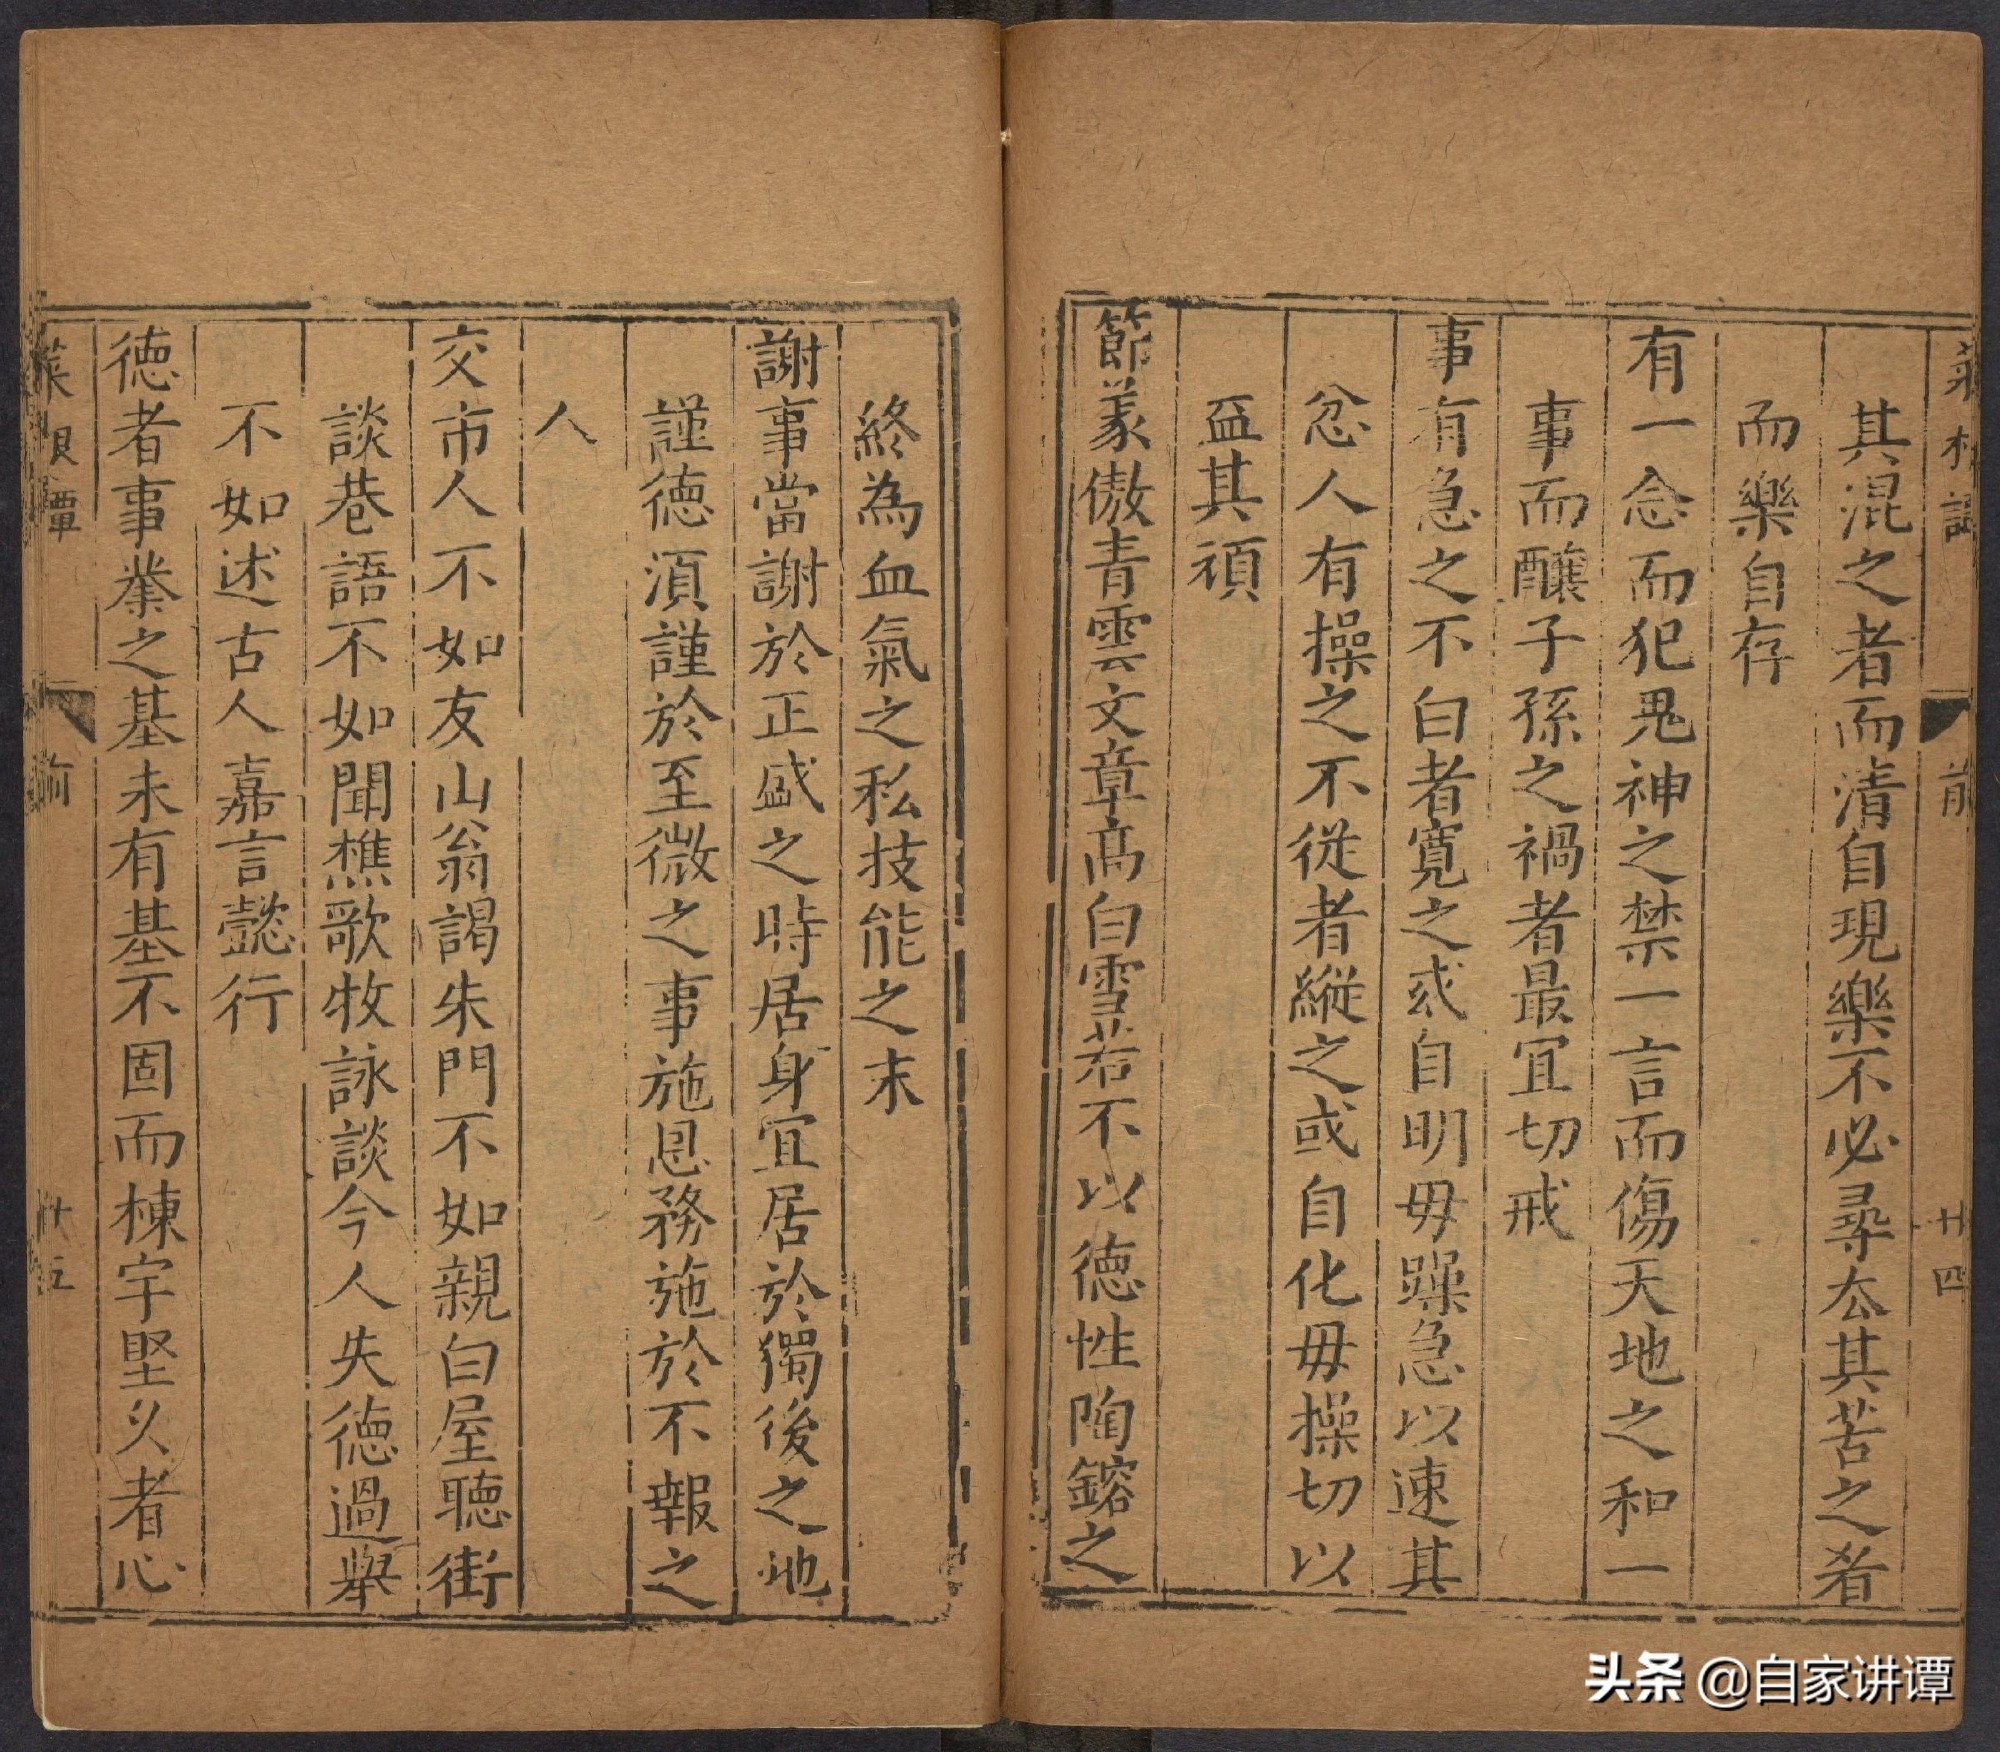 其混之者而清自現樂不必尋去其苦之者
而樂自存
有一念而犯鬼神之禁一言而傷天地之和一
事而釀子孫之禍者最宜切戒
事有急之不白者寬之或自明毋躁急以速其
忿人有操之不從者縱之或自化毋操切以
益其頑
節義傲青雲文章高白雪若不以德性陶鎔之
終為血氣之私技能之末
謝事當謝於正盛之時居身宜居於獨後之地
謹德須謹於至微之事施恩務施於不報之
人
交市人不如友山翁謁朱門不如親白屋聽街
談巷語不如聞樵歌牧詠談今人失德過舉
不如述古人嘉言懿行
德者事業之基未有基不固而棟宇堅久者心
菜根譚
前
廿四
菜根譚
前
廿五
头条 @自家讲谭